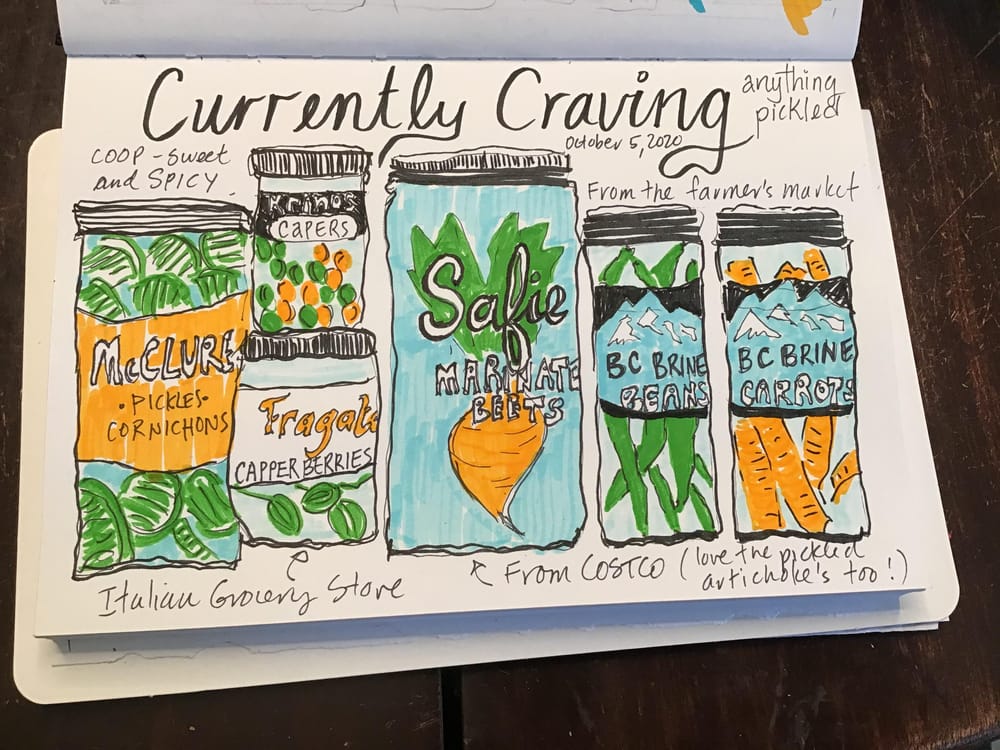 Currently Craving
anything
pickled
October 5, 2020
COOP - Sweet
and SPICY
From the farmer's market
Krinos
CAPERS
McCLURE
• PICKLES •
CORNICHONS
Fragata
CAPPERBERRIES
Safie
MARINATE
BEETS
BC BRINE
BEANS
BC BRINE
CARROTS
Italian Grocery Store
From COSTCO (love the pickled
artichoke's too!)